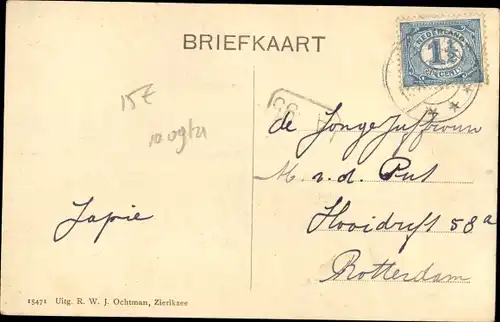 BRIEFKAART
NEDERLAND
1½
CENT
15£
de Jonge Juffrouw
M. v. d. Put
Hooidrift 58a
Rotterdam
Japie
15471 Uitg. R. W. J. Ochtman, Zierikzee